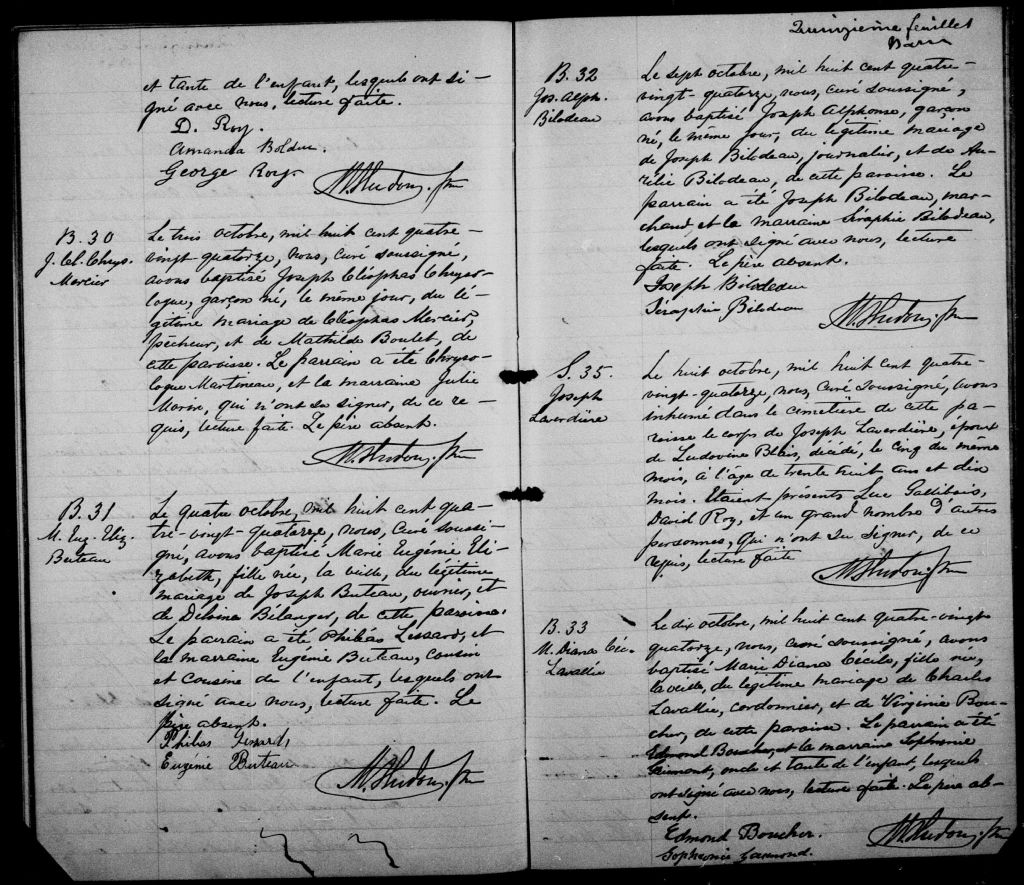 et tante de l'enfant, lesquels ont si-
gné avec nous, lecture faite.
D. Roy.
Amanda Bolduc.
George Roy.
B. 30
J. Cl. Chrys.
Mercier
Le trois octobre, mil huit cent quatre
vingt-quatorze, nous, curé soussigné,
avons baptisé Joseph Cléophas Chryso-
logue, garçon né, le même jour, du lé-
gitime mariage de Cléophas Mercier,
pêcheur, et de Mathilde Boulet, de
cette paroisse. Le parrain a été Chryso-
logue Martineau, et la marraine Julie
Morin, qui n'ont su signer, de ce re-
quis, lecture faite. Le père absent.
B. 31
M. Eug. Eliz.
Buteau
Le quatre octobre, mil huit cent qua-
tre-vingt-quatorze, nous, curé soussi-
gné, avons baptisé Marie Eugénie Eli-
zabeth, fille née, la veille, du légitime
mariage de Joseph Buteau, ouvrier, et
de Delvina Bélanger, de cette paroisse.
Le parrain a été Philéas Lessard, et
la marraine Eugénie Buteau, cousin
et cousine de l'enfant, lesquels ont
signé avec nous, lecture faite. Le
père absent.
Philéas Lessard
Eugénie Buteau
Quinzième feuillet
B. 32
Jos. Alph.
Bilodeau
Le sept octobre, mil huit cent quatre-
vingt-quatorze, nous, curé soussigné,
avons baptisé Joseph Alphonse, garçon
né, le même jour, du légitime mariage
de Joseph Bilodeau, journalier, et de Au-
rélie Bilodeau, de cette paroisse. Le
parrain a été Joseph Bilodeau, mar-
chand, et la marraine Séraphie Bilodeau,
lesquels ont signé avec nous, lecture
faite. Le père absent.
Joseph Bilodeau
Séraphie Bilodeau
S. 35.
Joseph
Laverdière
Le huit octobre, mil huit cent quatre-
vingt-quatorze, nous, curé soussigné, avons
inhumé dans le cimetière de cette pa-
roisse le corps de Joseph Laverdière, époux
de Ludovine Blais, décédé, le cinq du même
mois, à l'âge de trente huit ans et dix
mois. Etaient présents Luc Gallibois,
David Roy, et un grand nombre d'autres
personnes, qui n'ont su signer, de ce
requis, lecture faite
B. 33
M. Diana Céc.
Lavallée
Le dix octobre, mil huit cent quatre-vingt
quatorze, nous, curé soussigné, avons
baptisé Marie Diana Cécile, fille née,
la veille, du légitime mariage de Charles
Lavallée, cordonnier, et de Virginie Bou-
cher, de cette paroisse. Le parrain a été
Edmond Boucher, et la marraine Sophronie
oncle et tante de l'enfant, lesquels
ont signé avec nous, lecture faite. Le père ab-
sent.
Edmond Boucher.
Sophronie